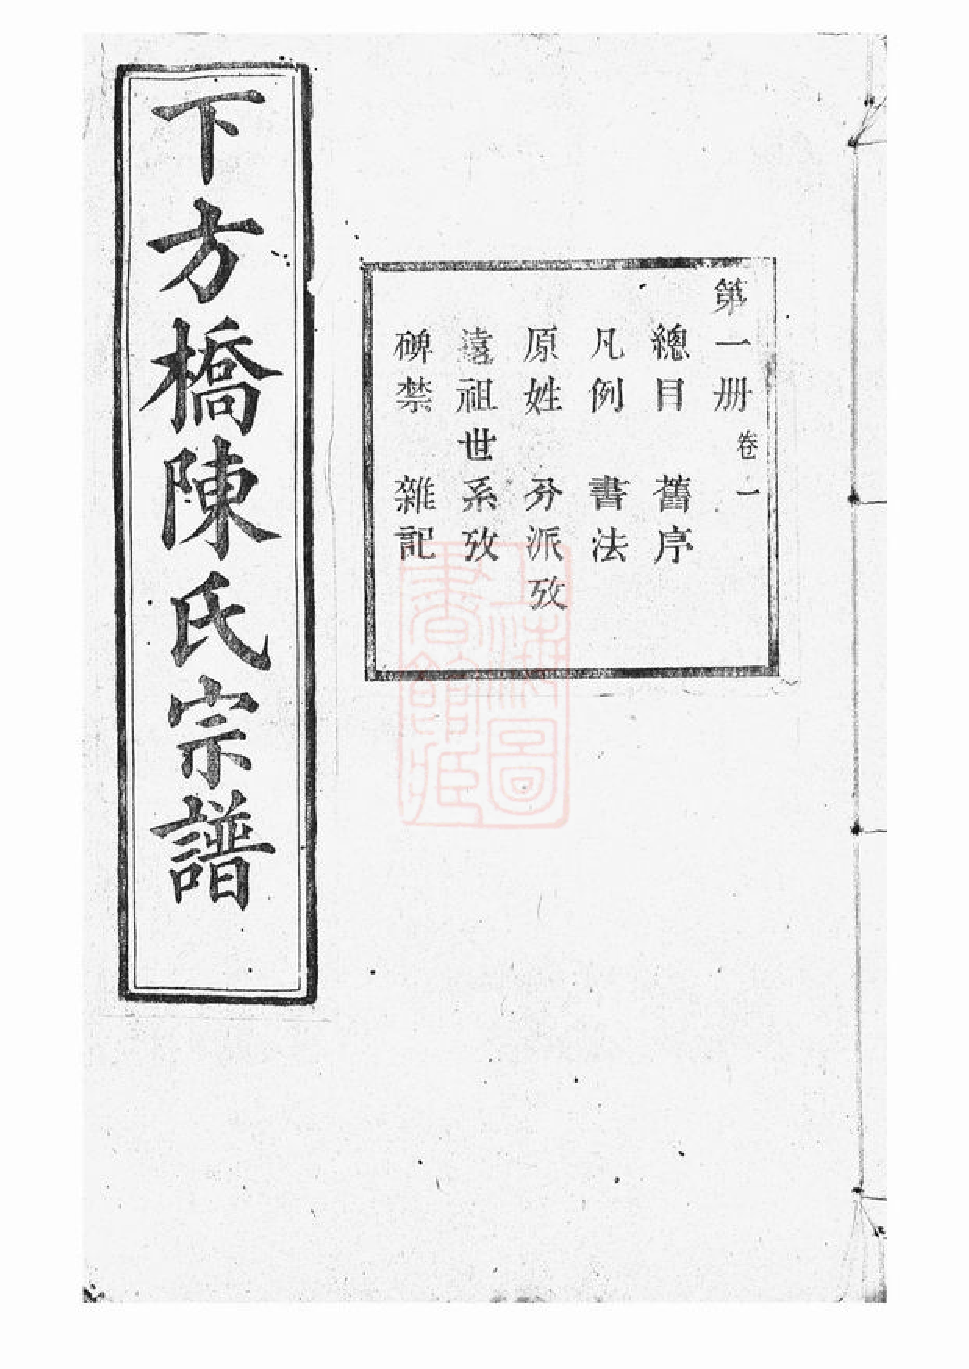 第一册 卷一
總目 舊序
凡例 書法
原姓 分派攷
遠祖世系攷
碑禁 雜記
下方橋陳氏宗譜
上海圖書館藏